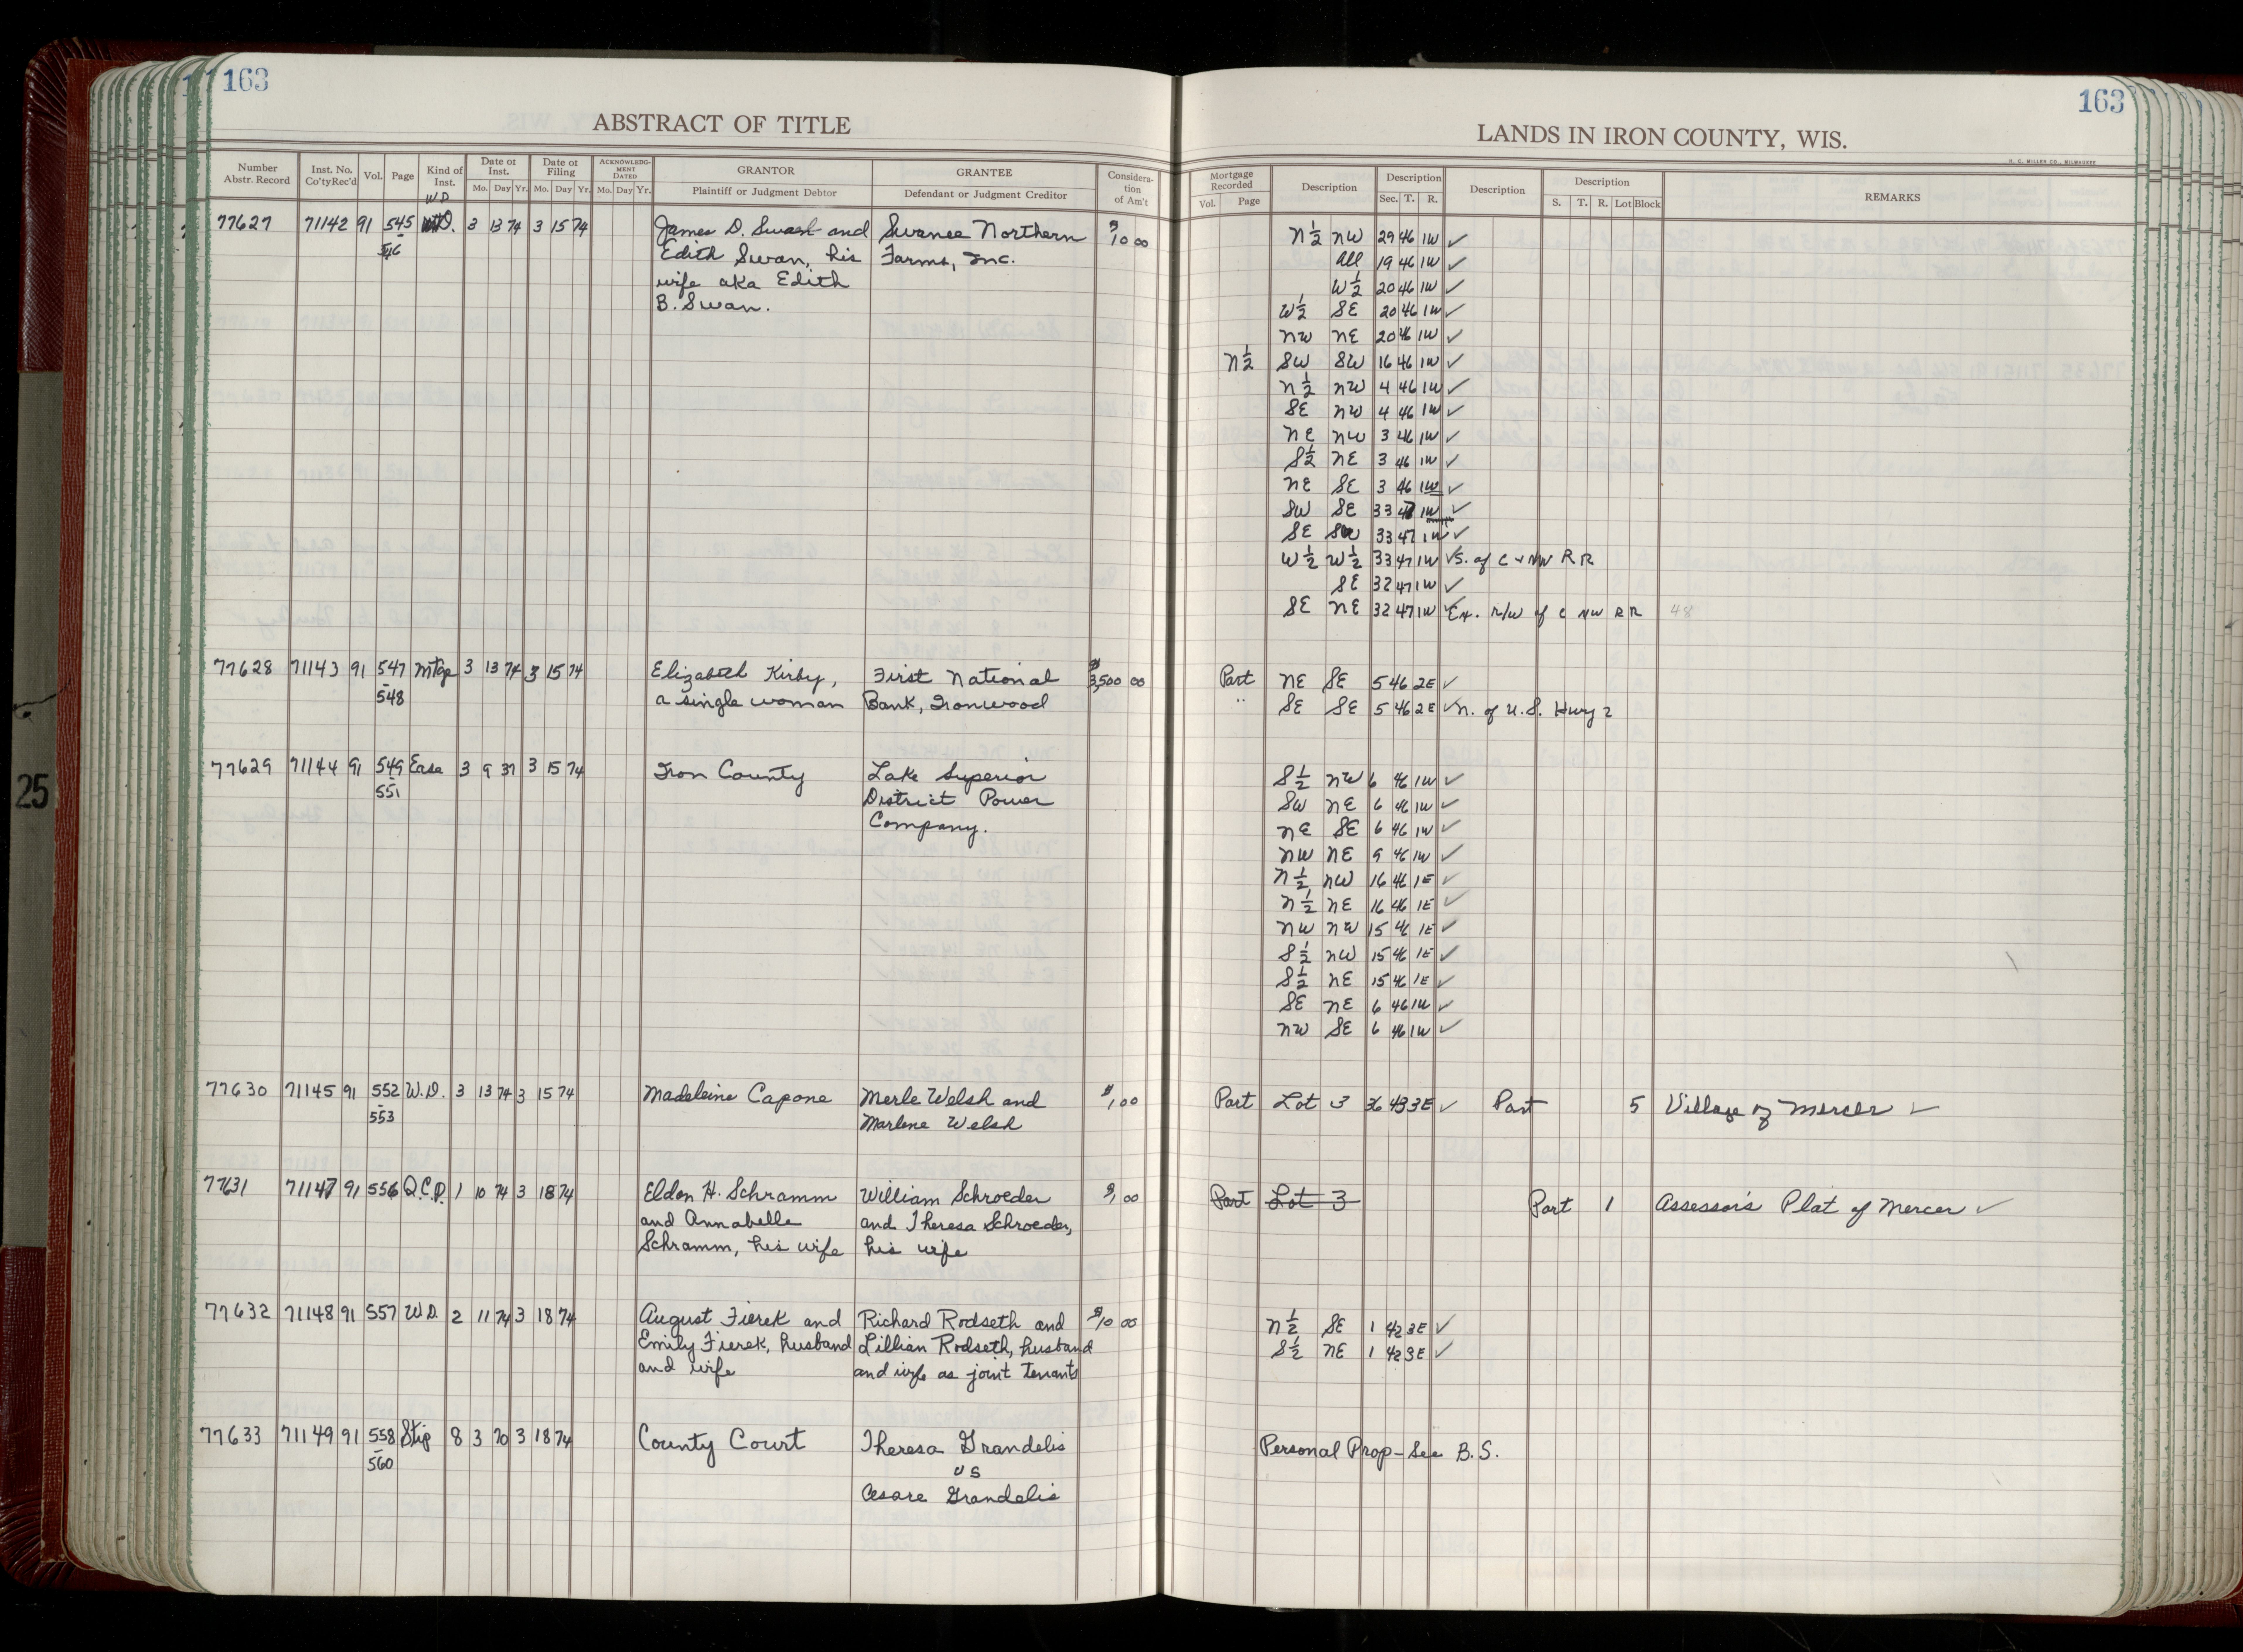 163
163
ABSTRACT OF TITLE
LANDS IN IRON COUNTY, WIS.
H. C. MILLER CO., MILWAUKEE
Number Abstr. Record | Inst. No. Co'ty Rec'd | Vol. | Page | Kind of Inst. | Date of Inst. Mo. Day Yr. | Date of Filing Mo. Day Yr. | ACKNOWLEDGMENT DATED Mo. Day Yr. | GRANTOR Plaintiff or Judgment Debtor | GRANTEE Defendant or Judgment Creditor | Consideration of Am't
Mortgage Recorded Vol. Page | Description | Description Sec. T. R. | Description | Description S. T. R. Lot Block | REMARKS
W D
77627 71142 91 545 D. 3 13 74 3 15 74 James D. Swan and Swanee Northern $10 00 N½ NW 29 46 1W ✓
546 Edith Swan, his Farms, Inc. All 19 46 1W ✓
wife aka Edith W½ 20 46 1W ✓
B. Swan. W½ SE 20 46 1W ✓
NW NE 20 46 1W ✓
N½ SW SW 16 46 1W ✓
N½ NW 4 46 1W ✓
SE NW 4 46 1W ✓
NE NW 3 46 1W ✓
S½ NE 3 46 1W ✓
NE SE 3 46 1W ✓
SW SE 33 47 1W ✓
SE SW 33 47 1W ✓
W½ W½ 33 47 1W ✓ S. of C + NW RR
SE 32 47 1W ✓
SE NE 32 47 1W ✓ Ex. R/W of C NW RR 48
77628 71143 91 547 Mtge 3 13 74 3 15 74 Elizabeth Kirby, First National $3,500 00 Part NE SE 5 46 2E ✓
- 548 a single woman Bank, Ironwood " SE SE 5 46 2E ✓ N. of U.S. Hwy 2
77629 71144 91 549 Ease 3 9 37 3 15 74 Iron County Lake Superior S½ NW 6 46 1W ✓
- 551 District Power SW NE 6 46 1W ✓
Company. NE SE 6 46 1W ✓
NW NE 9 46 1W ✓
N½ NW 16 46 1E ✓
N½ NE 16 46 1E ✓
NW NW 15 46 1E ✓
S½ NW 15 46 1E ✓
S½ NE 15 46 1E ✓
SE NE 6 46 1W ✓
NW SE 6 46 1W ✓
77630 71145 91 552 W.D. 3 13 74 3 15 74 Madeleine Capone Merle Welsh and $1,00 Part Lot 3 36 43 3E ✓ Part 5 Village of Mercer ✓
- 553 Marlene Welsh
77631 71147 91 556 Q.C.D. 1 10 74 3 18 74 Eldon H. Schramm William Schroeder $1,00 Part Lot 3 Part 1 Assessor's Plat of Mercer ✓
and Annabelle and Theresa Schroeder,
Schramm, his wife his wife
77632 71148 91 557 W.D. 2 11 74 3 18 74 August Fierek and Richard Rodseth and $10 00 N½ SE 1 42 3E ✓
Emily Fierek, husband Lillian Rodseth, husband S½ NE 1 42 3E ✓
and wife and wife as joint tenants
77633 71149 91 558 Stip 8 3 70 3 18 74 County Court Theresa Grandelis Personal Prop - See B.S.
- 560 vs
Cesare Grandelis
25